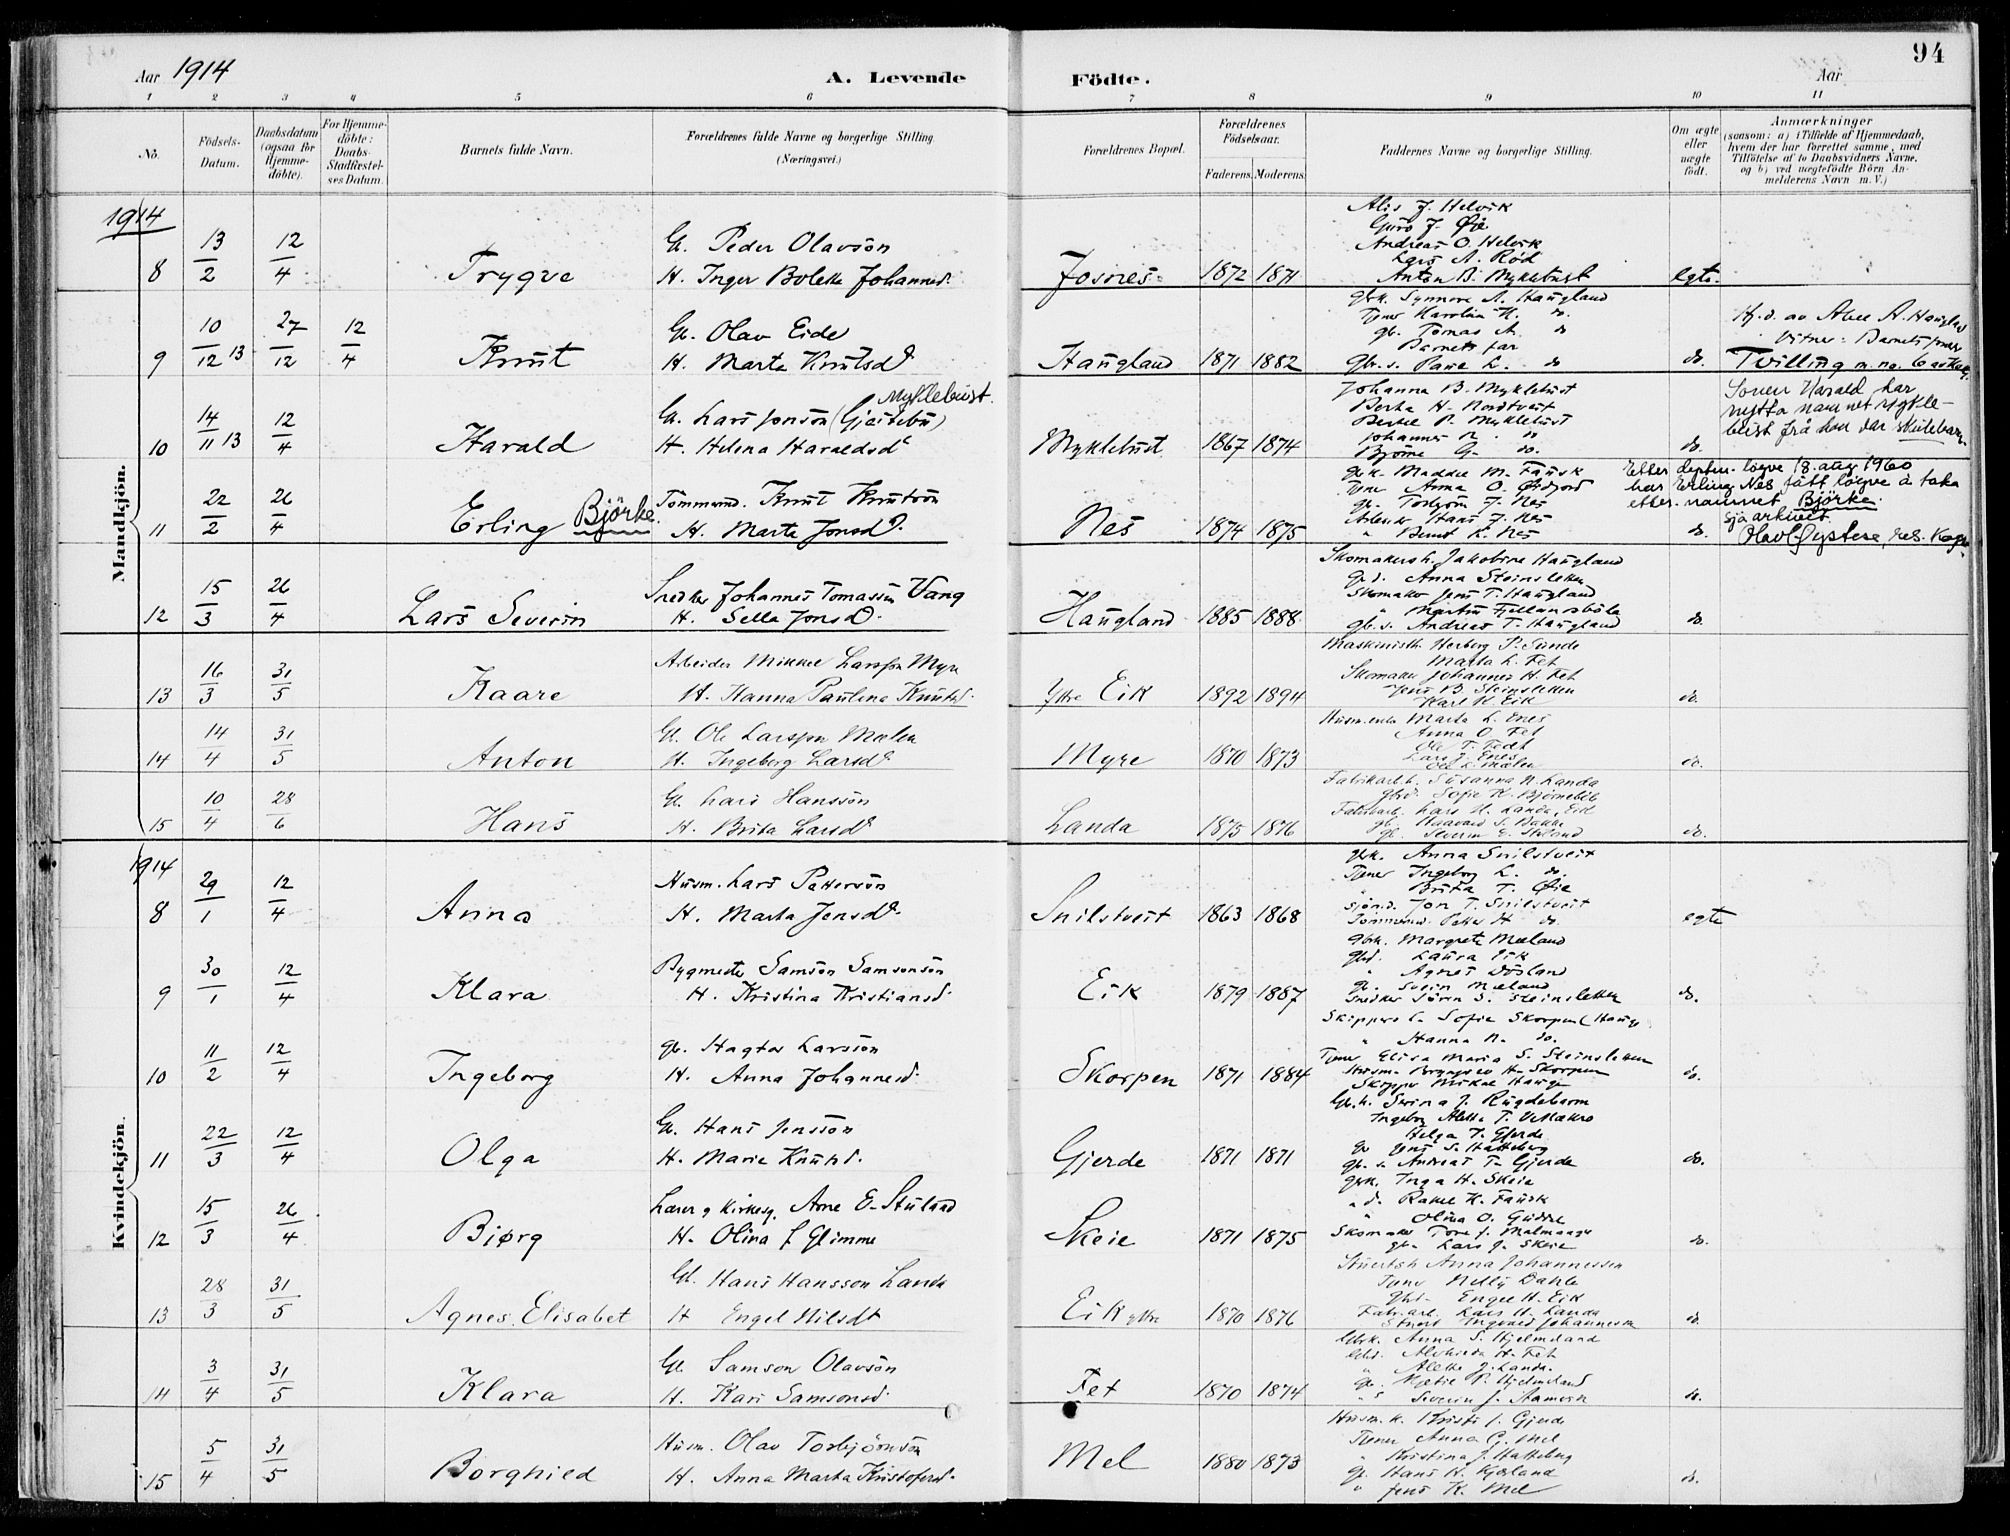 94
Aar 1914
A. Levende Födte.
Aar
1 2 3 4 5 6 7 8 9 10 11
No.
Födsels-Datum.
Daabsdatum (ogsaa for Hjemme-döbte).
For Hjemme-döbte: Daabs-Stadfæstel-ses Datum.
Barnets fulde Navn.
Forældrenes fulde Navne og borgerlige Stilling (Næringsvei.)
Forældrenes Bopæl.
Forældrenes Födselsaar.
Faderens. Moderens.
Faddernes Navne og borgerlige Stilling.
Om ægte eller uægte födt.
Anmærkninger
(saasom: a) i Tilfælde af Hjemmedaab,
hvem der har forrettet samme, med
Tilföielse af to Daabsvidners Navne,
og b) ved uægtefödte Börn An-
melderens Navn m. V.)
Mandkjön.
1914
8 13/2 12/4 Trygve
G. Peder Olavsön
H. Inger Bolette Johannesd.
Fosnes 1872 1871
Alis J. Helvik
Guro J. Øie
Andreas O. Helvik
Lars A. Röd
Anton B. Myklebust
egte.
9 10/12 13 27/12 12/4 Knut
G. Olav Eide
H. Marta Knutsd.
Haugland 1871 1882
gbk. Synnøve A. Haugland
Tjener Karolina K. do.
gb. Tomas A. do
Barnets far
do.
Hj.d. av Abel A. Haugland
Vitner: Barnets far
Tvilling m. no. 6 av Kvkj.
10 14/11 13 12/4 Harald
Myklebust.
G. Lars Jonsön (Gjeitebø)
H. Helena Haraldsd.
Myklebust 1867 1874
Johanna B. Myklebust
Berta H. Nordtveit
Bertel P. Myklebust
Johannes do
Bjørne G. do.
do.
Sonen Harald har
nytta namnet Mykle-
bust frå han var skulebarn.
11 22/2 26/4 Erling Björke.
Tömmermd. Knut Knutsön
H. Marta Jonsd.
Nes 1874 1875
gbk. Maddel M. Fausk
Tjener Anna O. Ødfjord
gb. Torbjörn J. Nes
Arbeider Hans J. Nes
" Bernt K. Nes
do.
Etter depten. löyve 18. aug 1960
har Erling Nes fått löyve å taka
etter-namnet Björke.
Sjå arkivet.
Olav Øystese, res. kap.
12 15/3 26/4 Lars Severin
Snedker Johannes Tomassen Vang
H. Sella Jonsd.
Haugland 1885 1888
Skomakersh. Jakobine Haugland
Gd. Anna Steinsletten
Skomaker Jens T. Haugland
gb.s. Andreas T. Haugland
do.
13 16/3 31/5 Kaare
Arbeider Mikkel Larsson Myre
H. Hanna Paulina Knutsd.
Ytre Eik 1892 1894
Maskinisth. Herborg P. Sunde
Marta L. Fet
Skomaker Johannes H. Fet
Jens B. Steinsletten
Karl K. Eik
do.
14 14/4 31/5 Anton
G. Ole Larsson Mælen
H. Ingeborg Larsd.
Myre 1870 1873
Husm.enke Marta L. Enes
Anna O. Fet
Ole T. Fedt
Lars J. Enes
do.
15 10/4 28/6 Hans
G. Lars Hansson
H. Brita Larsd.
Landa 1875 1876
Fabrikarb.h. Susanna N. Landa
gbd. Sofie K. Björnebøle
Fabrikarb. Lars H. Landa, Eid
gb. Haavard S. Bakke
do.
Kvindekjön.
1914
8 29/1 12/4 Anna
Husm. Lars Pettersön
H. Marta Jensd.
Snilstveit 1863 1868
gbk. Anna Snilstveit
Tjener Ingeborg L. do.
" Brita T. Øie
Sjömd. Jon T. Snilstveit
Tömmermd. Petter H. do.
egte
9 30/1 12/4 Klara
Bygmester Samson Samsonsön
H. Kristina Kristiansd.
Eik 1879 1887
gbk. Margrete Mæland
gbd. Laura Eik
" Agnes Dösland
gb. Svein Mæland
Snedker Sören S. Steinsletten
do.
10 11/2 12/4 Ingeborg
gb. Hagtor Larssön
H. Anna Johannesd.
Skorpen 1871 1884
Skippers h. Sofie Skorpen (Hauge)
" Hanna N. do.
Tjener Elisa Maria S. Steinsletten
Husm. Brynjulv H. Skorpen
Skipper Mikal Hauge
do.
11 22/3 12/4 Olga
G. Hans Jenssön
H. Marie Knutsd.
Gjerde 1871 1871
Gbk. Serina J. Rugdebarm
Helga T. Gjerde
gb. Jens S. Hatteberg
gb. s. Andreas T. Gjerde
do.
12 15/3 26/4 Biørg
Lærer og Kirkesg. Arne E. Stuland
H. Olina J. Glimme
Skeie 1871 1875
gbk. Inga H. Skeie
" d. Rakel K. Fausk
" Olina O. Guddal
Skomaker Tore J. Malmanger
gb. Lars J. Skeie
do.
13 28/3 31/5 Agnes Elisabet
Gb. Hans Hansson Landa
H. Engel Nilsdt
Eik ytre 1870 1876
Stuertsh. Anna Johannessen
Tjener Nelly Dahle
gbd. Engel H. Eik
Fabr.arb. Lars H. Landa
Stuert Ingvald Johannesen
do.
14 3/4 31/5 Klara
Gb. Samson Olavsön
H. Kari Samsonsd.
Fet 1870 1874
Gbk. Anna S. Hjelmeland
Gbd. Alvhilda H. Fet
" Alette J. Landa.
gb. Matis P. Hjelmeland
" s Severin J. Aamvik
do.
15 5/4 31/5 Borghild
Husm. Olav Torbjörnsön
H. Anna Marta Kristofersd.
Mel 1880 1873
Husm. k. Kristi J. Gjerde
Tjener Anna G. Mel
" Kristina J. Hatteberg
G. Hans H. Kjerland
" Jens K. Mel
do.